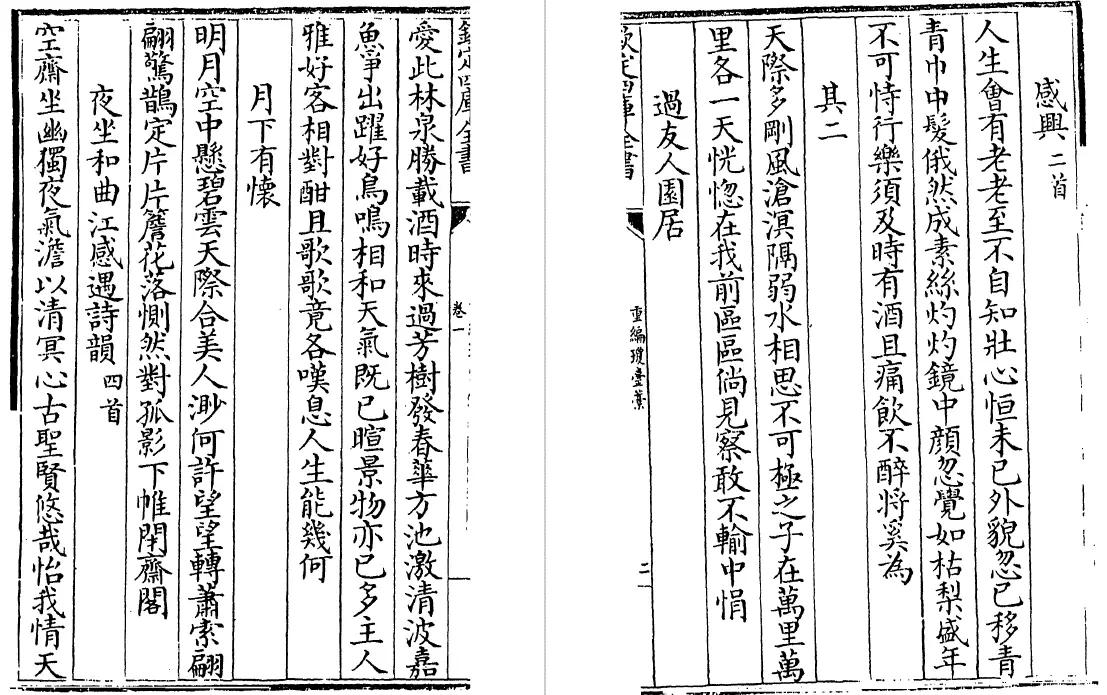 感興二首
人生會有老老至不自知壯心恒未已外貌忽已移青
青巾中髮俄然成素絲灼灼鏡中顔忽覺如枯梨盛年
不可恃行樂須及時有酒且痛飲不醉將奚為
其二
天際多剛風滄溟隔弱水相思不可極之子在萬里萬
里各一天恍惚在我前區區倘見察敢不輸中悁
過友人園居
欽定四庫全書
重編瓊臺藁
二
欽定四庫全書
卷一
愛此林泉勝載酒時來過芳樹發春華方池激清波嘉
魚爭出躍好鳥鳴相和天氣既已暄景物亦已多主人
雅好客相對酣且歌歌竟各嘆息人生能幾何
月下有懷
明月空中懸碧雲天際合美人渺何許望望轉蕭索翩
翩驚鵲定片片簷花落惻然對孤影下帷閉齋閣
夜坐和曲江感遇詩韻四首
空齋坐幽獨夜氣澹以清冥心古聖賢悠哉怡我情天